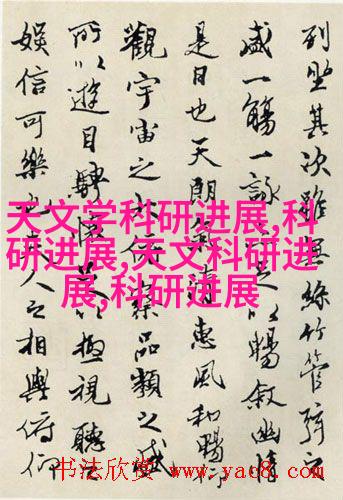 列坐其次雖無絲竹管弦之
盛一觴一詠亦足以暢敘幽情
是日也天朗氣清惠風和暢仰
觀宇宙之大俯察品類之盛
所以遊目騁懷足以極視聽之
娛信可樂也夫人之相與俯仰
天文学科研进展,科
研进展,天文科研进
展,科研进展
书法欣赏 www.yac8.com